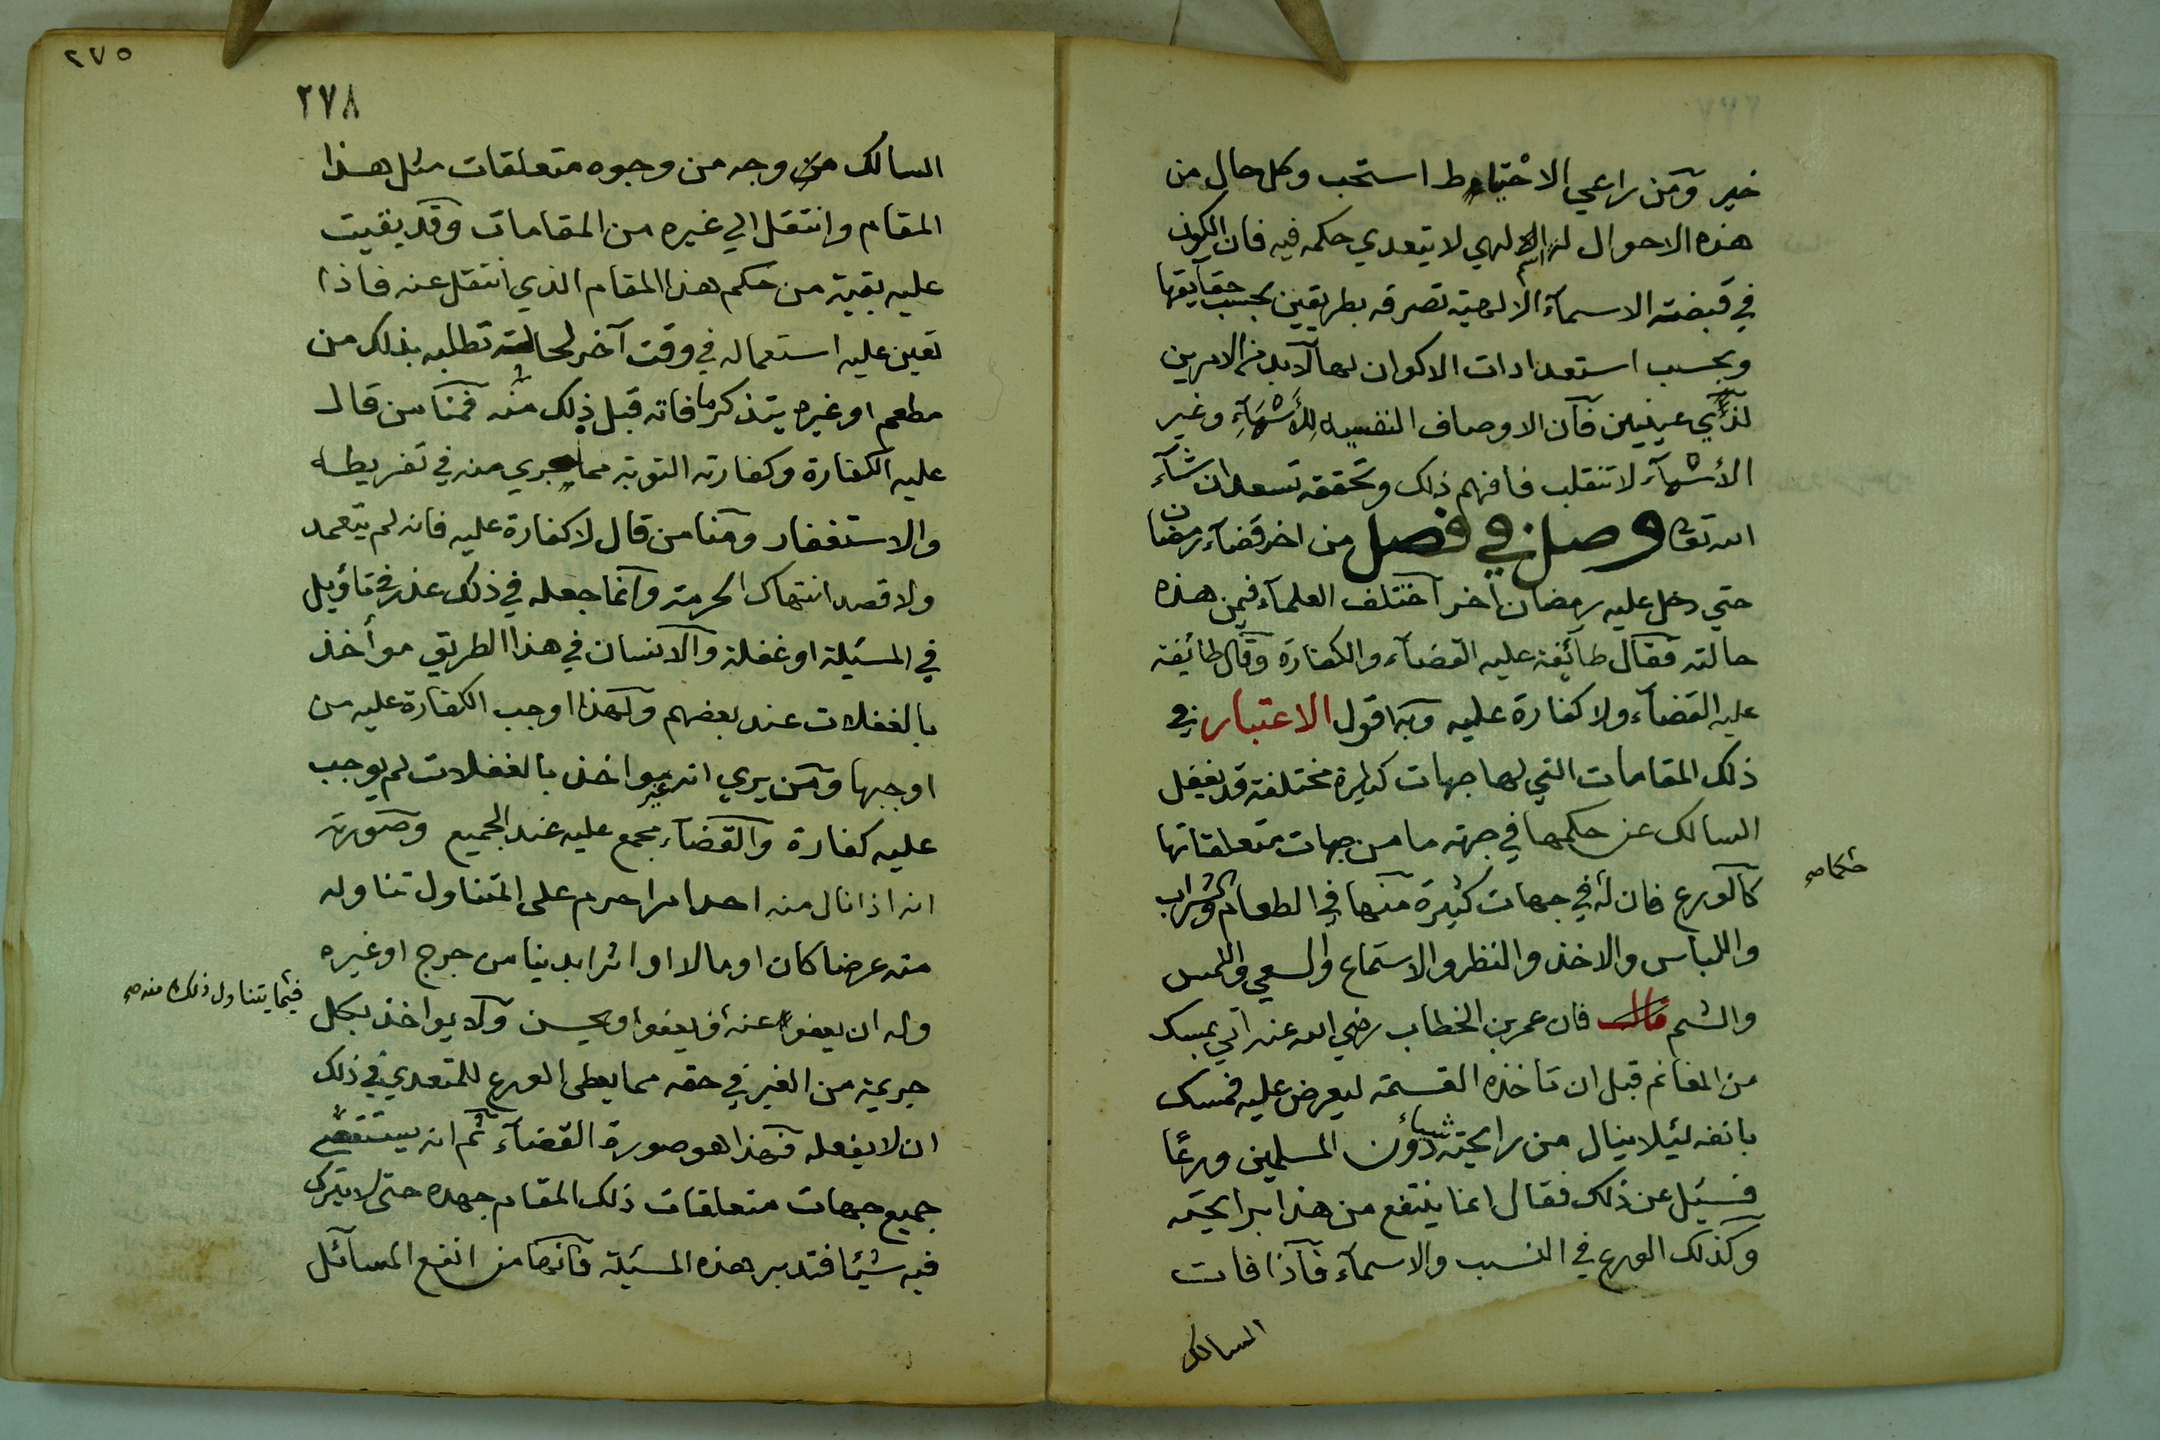 خير ومن راعي الاحتياط استحب وكل حال من
هذه الاحوال له اسم الهي لا يتعدي حكمه فيه فان الكون
في قبضة الاسمآء الالهية تصرفه بطريقين بحسب حقايقها
وبحسب استعدادات الاكوان لها لا بد من الامرين
لذي عينين فان الاوصاف النفسية للأشيآء وغير
الأشيآء لا تنقلب فافهم ذلك وتحققه تسعد ان شآء
الله تعا وصل في فصل من اخر قضآء رمضان
حتي دخل عليه رمضان آخر اختلف العلمآء فيمن هذه
حالته فقال طآئفة عليه القضآء والكفارة وقال طائفة
عليه القضآء ولا كفارة عليه وبه اقول الاعتبار في
ذلك المقامات التي لها جهات كثيرة مختلفة قد يغفل
السالك عن حكمها في جهة ما من جهات متعلقاتها
حكما صح
كالورع فان له في جهات كثيرة منها في الطعام والشراب
واللباس والاخذ والنظر والاستماع والسعي واللمس
والشم فان عمر بن الخطاب رضي الله عنه اتي بمسك
من المغانم قبل ان تاخذه القسمة ليعرض عليه فمسك
بانفه لئيلا ينال من رايحته شيئا دون المسلمين ورعا
فسئل عن ذلك فقال انما ينتفع من هذا برايحته
وكذلك الورع في النسب والاسمآء فاذا فات
السالك
٢٧٥
٢٧٨
السالك من وجه من وجوه متعلقات مثل هذا
المقام وانتقل الي غيره من المقامات وقد بقيت
عليه بقية من حكم هذا المقام الذي انتقل عنه فاذا
تعين عليه استعماله في وقت آخر لحالة تطلبه بذلك من
مطعم او غيره يتذكر ما فاته قبل ذلك منه فمنا من قال
عليه الكفارة وكفارته التوبة مما جري منه في تفريطه
والاستغفار ومنا من قال لا كفارة عليه فانه لم يتعمد
ولا قصد انتهاك الحرمة وانما جعله في ذلك عذر في تاويل
في المسئلة او غفلة والانسان في هذا الطريق مواخذ
بالغفلات عند بعضهم ولهذا اوجب الكفارة عليه من
اوجبها ومن يري انه غير مواخذ بالغفلات لم يوجب
عليه كفارة والقضآء مجمع عليه عند الجميع وصورته
انه اذا نال منه احد امرا حرم على المتناول تناوله
منه عرضا كان او مالا او اثرا بدنيا من جرح او غيره
وله ان يعفوا عنه فيعفوا ويحسن ولا يواخذ بكل
فيما يتناول ذلك منه صح
جريمة من الغير في حقه مما يعطى الورع للمتعدي في ذلك
ان لا يفعله فهذا هو صورة القضآء ثم انه يستقصي
جميع جهات متعلقات ذلك المقام جهده حتى لا يترك
فيه شيئا فتدبر هذه المسئلة فانها من انفع المسآئل